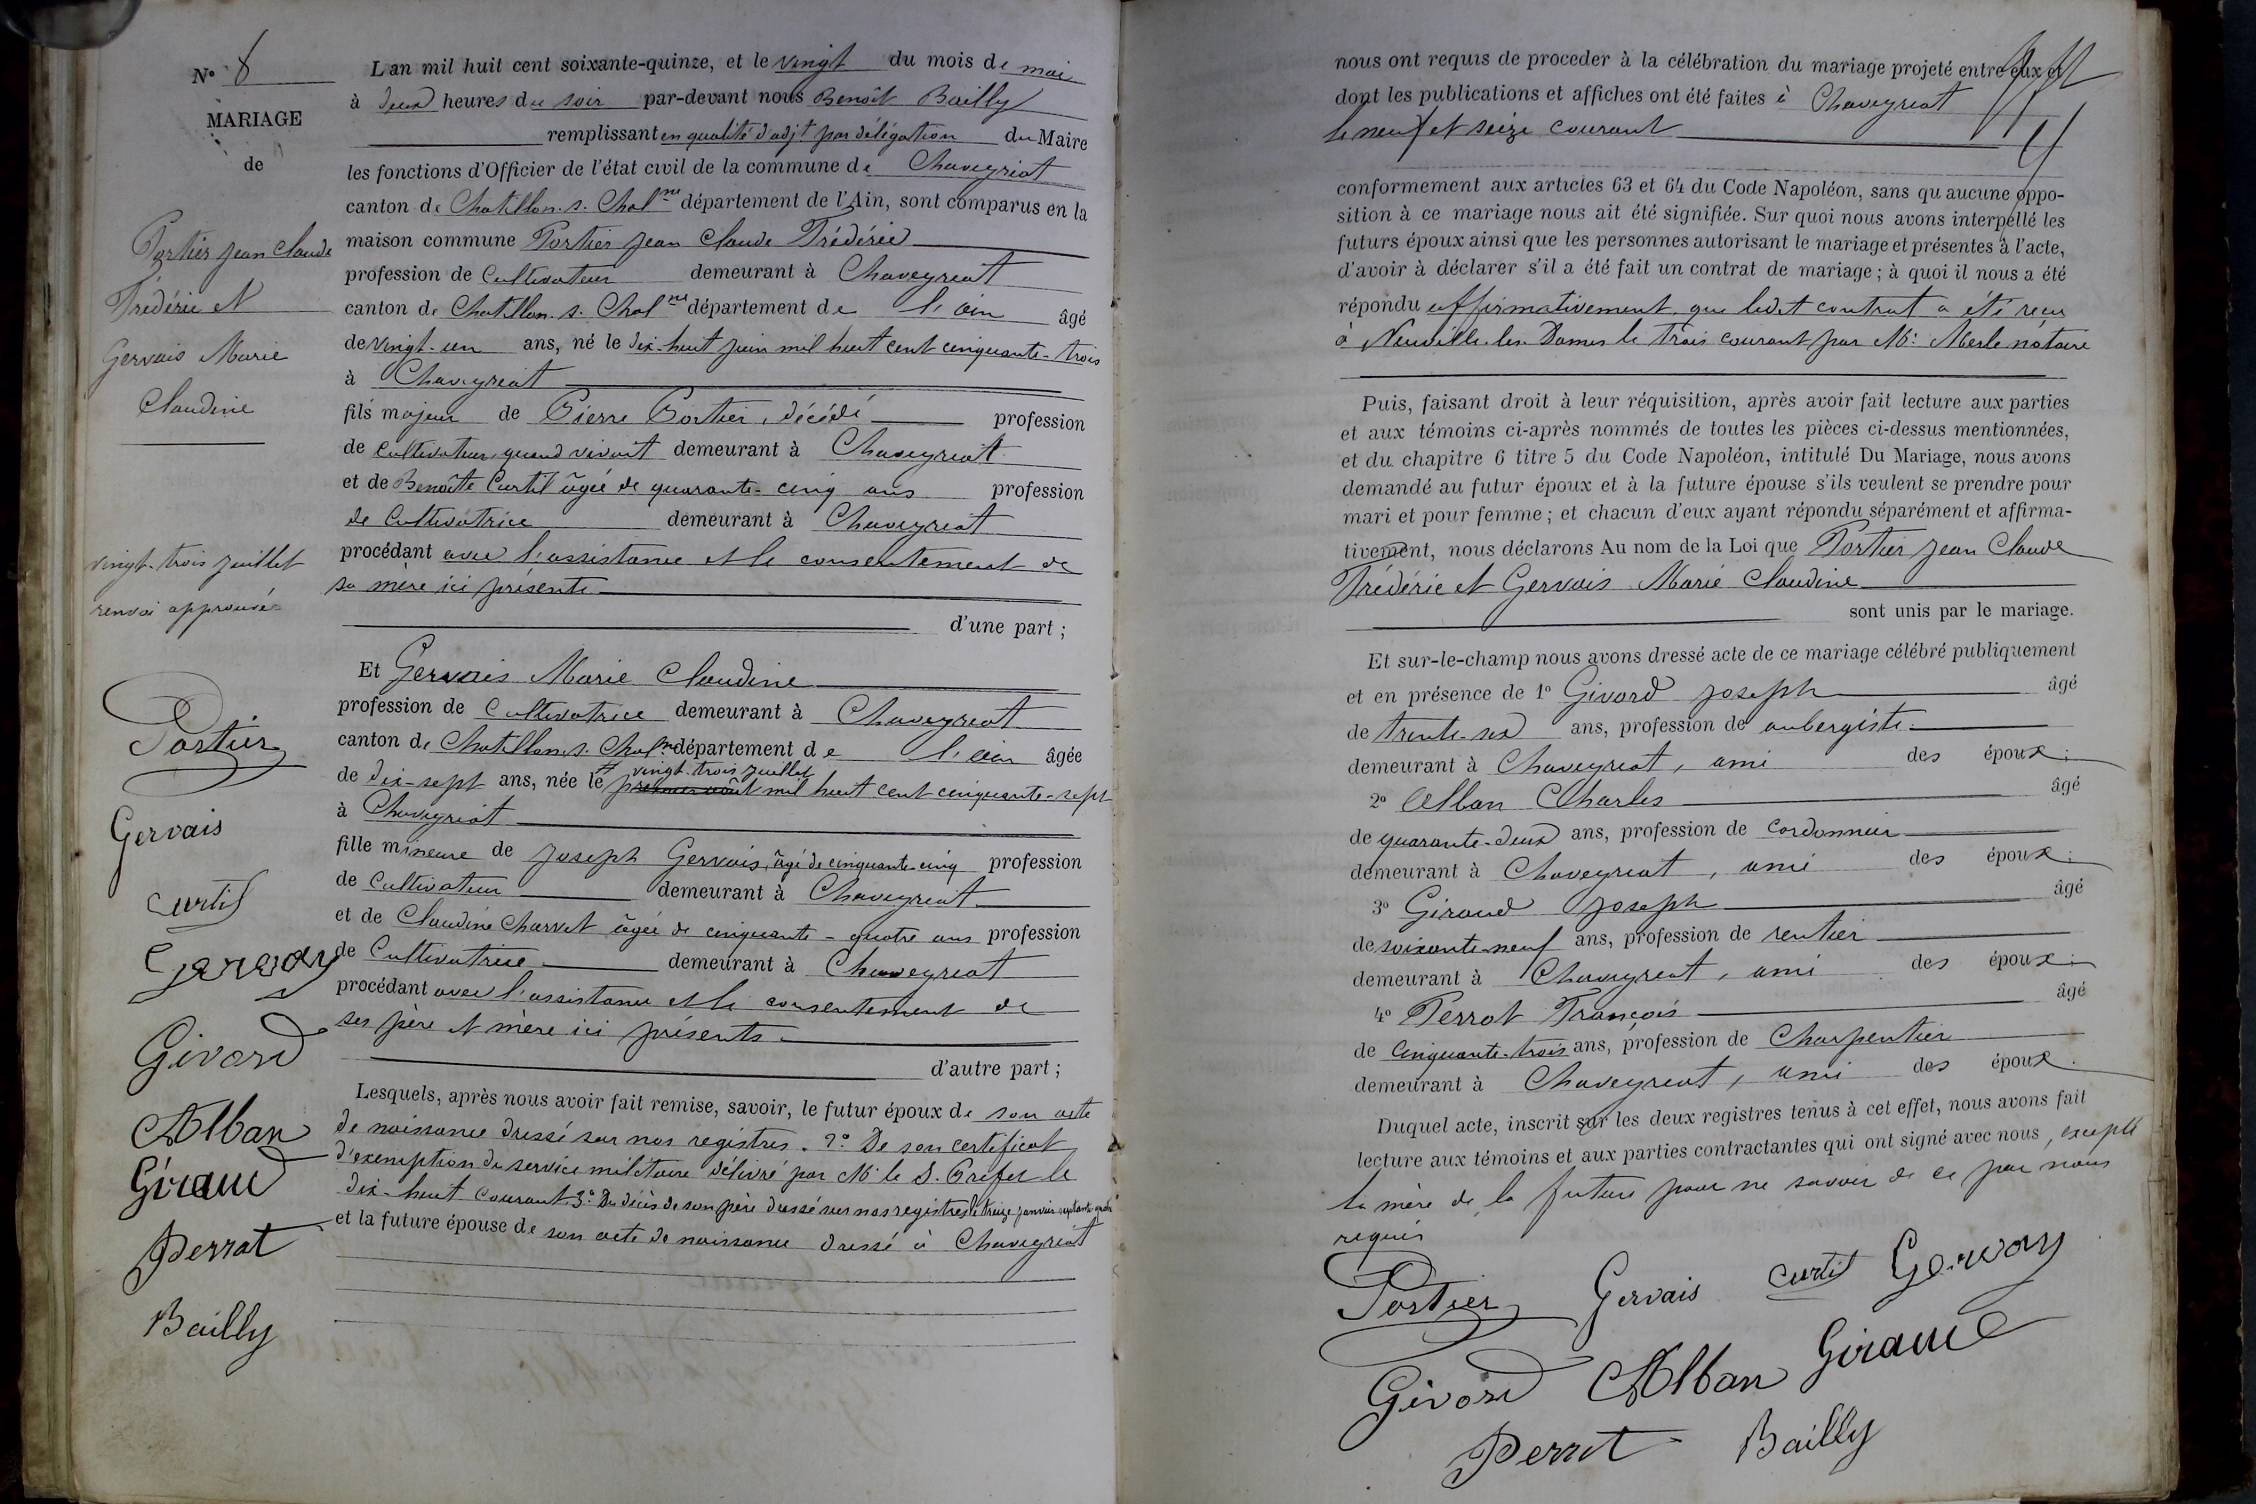 N° 8
MARIAGE
de
Portier Jean Claude
Frédéric et
Gervais Marie
Claudine
vingt-trois juillet
renvoi approuvé
Portier
Gervais
Curtil
Gervay
Givord
Alban
Giraud
Perrat
Bailly
L'an mil huit cent soixante-quinze, et le vingt du mois de mai
à deux heures du soir par-devant nous Benoît Bailly
remplissant en qualité d'adjt par délégation du Maire
les fonctions d'Officier de l'état civil de la commune de Chaveyriat
canton de Chatillon. s. Chalne département de l'Ain, sont comparus en la
maison commune Portier Jean Claude Frédéric
profession de Cultivateur demeurant à Chaveyriat
canton de Chatillon. s. Chalne département de l'ain âgé
de vingt-un ans, né le dix-huit juin mil huit cent cinquante-trois
à Chaveyriat
fils majeur de Pierre Portier, décédé profession
de cultivateur, quand vivait demeurant à Chaveyriat
et de Benoîte Curtil âgée de quarante-cinq ans profession
de Cultivatrice demeurant à Chaveyriat
procédant avec l'assistance et le consentement de
sa mère ici présente
d'une part ;
Et Gervais Marie Claudine
profession de Cultivatrice demeurant à Chaveyriat
canton de Chatillon. s. Chalne département de l'ain âgée
vingt-trois juillet
de dix-sept ans, née le premier août mil huit cent cinquante-sept
à Chaveyriat
fille mineure de Joseph Gervais, âgé de cinquante-cinq profession
de Cultivateur demeurant à Chaveyriat
et de Claudine Charvet âgée de cinquante-quatre ans profession
de Cultivatrice demeurant à Chaveyriat
procédant avec l'assistance et le consentement de
ses père et mère ici présents
d'autre part ;
Lesquels, après nous avoir fait remise, savoir, le futur époux de son acte
de naissance dressé sur nos registres. 2° De son certificat
d'exemption du service militaire délivré par Mr le S. Préfet le
dix-huit courant. 3° Du décès de son père dressé sur nos registres le treize janvier
et la future épouse de son acte de naissance dressé à Chaveyriat
nous ont requis de proceder à la célébration du mariage projeté entre eux et
dont les publications et affiches ont été faites à Chaveyriat
le neuf et seize courant
conformement aux articles 63 et 64 du Code Napoléon, sans qu aucune oppo-
sition à ce mariage nous ait été signifiée. Sur quoi nous avons interpellé les
futurs époux ainsi que les personnes autorisant le mariage et présentes à l'acte,
d'avoir à déclarer s'il a été fait un contrat de mariage ; à quoi il nous a été
répondu affirmativement que ledit contrat a été recu
à Neuville les Dames le trois courant par Me Merle notaire
Puis, faisant droit à leur réquisition, après avoir fait lecture aux parties
et aux témoins ci-après nommés de toutes les pièces ci-dessus mentionnées,
et du chapitre 6 titre 5 du Code Napoléon, intitulé Du Mariage, nous avons
demandé au futur époux et à la future épouse s'ils veulent se prendre pour
mari et pour femme ; et chacun d'eux ayant répondu séparément et affirma-
tivement, nous déclarons Au nom de la Loi que Portier Jean Claude
Frédéric et Gervais Marie Claudine
sont unis par le mariage.
Et sur-le-champ nous avons dressé acte de ce mariage célébré publiquement
et en présence de 1° Givord Joseph âgé
de trente-six ans, profession de aubergiste
demeurant à Chaveyriat, ami des époux :
2° Alban Charles âgé
de quarante-deux ans, profession de Cordonnier
demeurant à Chaveyriat, ami des époux :
3° Giraud Joseph âgé
de soixante-neuf ans, profession de rentier
demeurant à Chaveyriat, ami des époux :
4° Perrat François âgé
de cinquante-trois ans, profession de Charpentier
demeurant à Chaveyriat, ami des époux.
Duquel acte, inscrit sur les deux registres tenus à cet effet, nous avons fait
lecture aux témoins et aux parties contractantes qui ont signé avec nous, excepté
la mère de la future pour ne savoir de ce par nous
requis
Portier Gervais Curtil Gervay
Givord Alban Giraud
Perrat Bailly